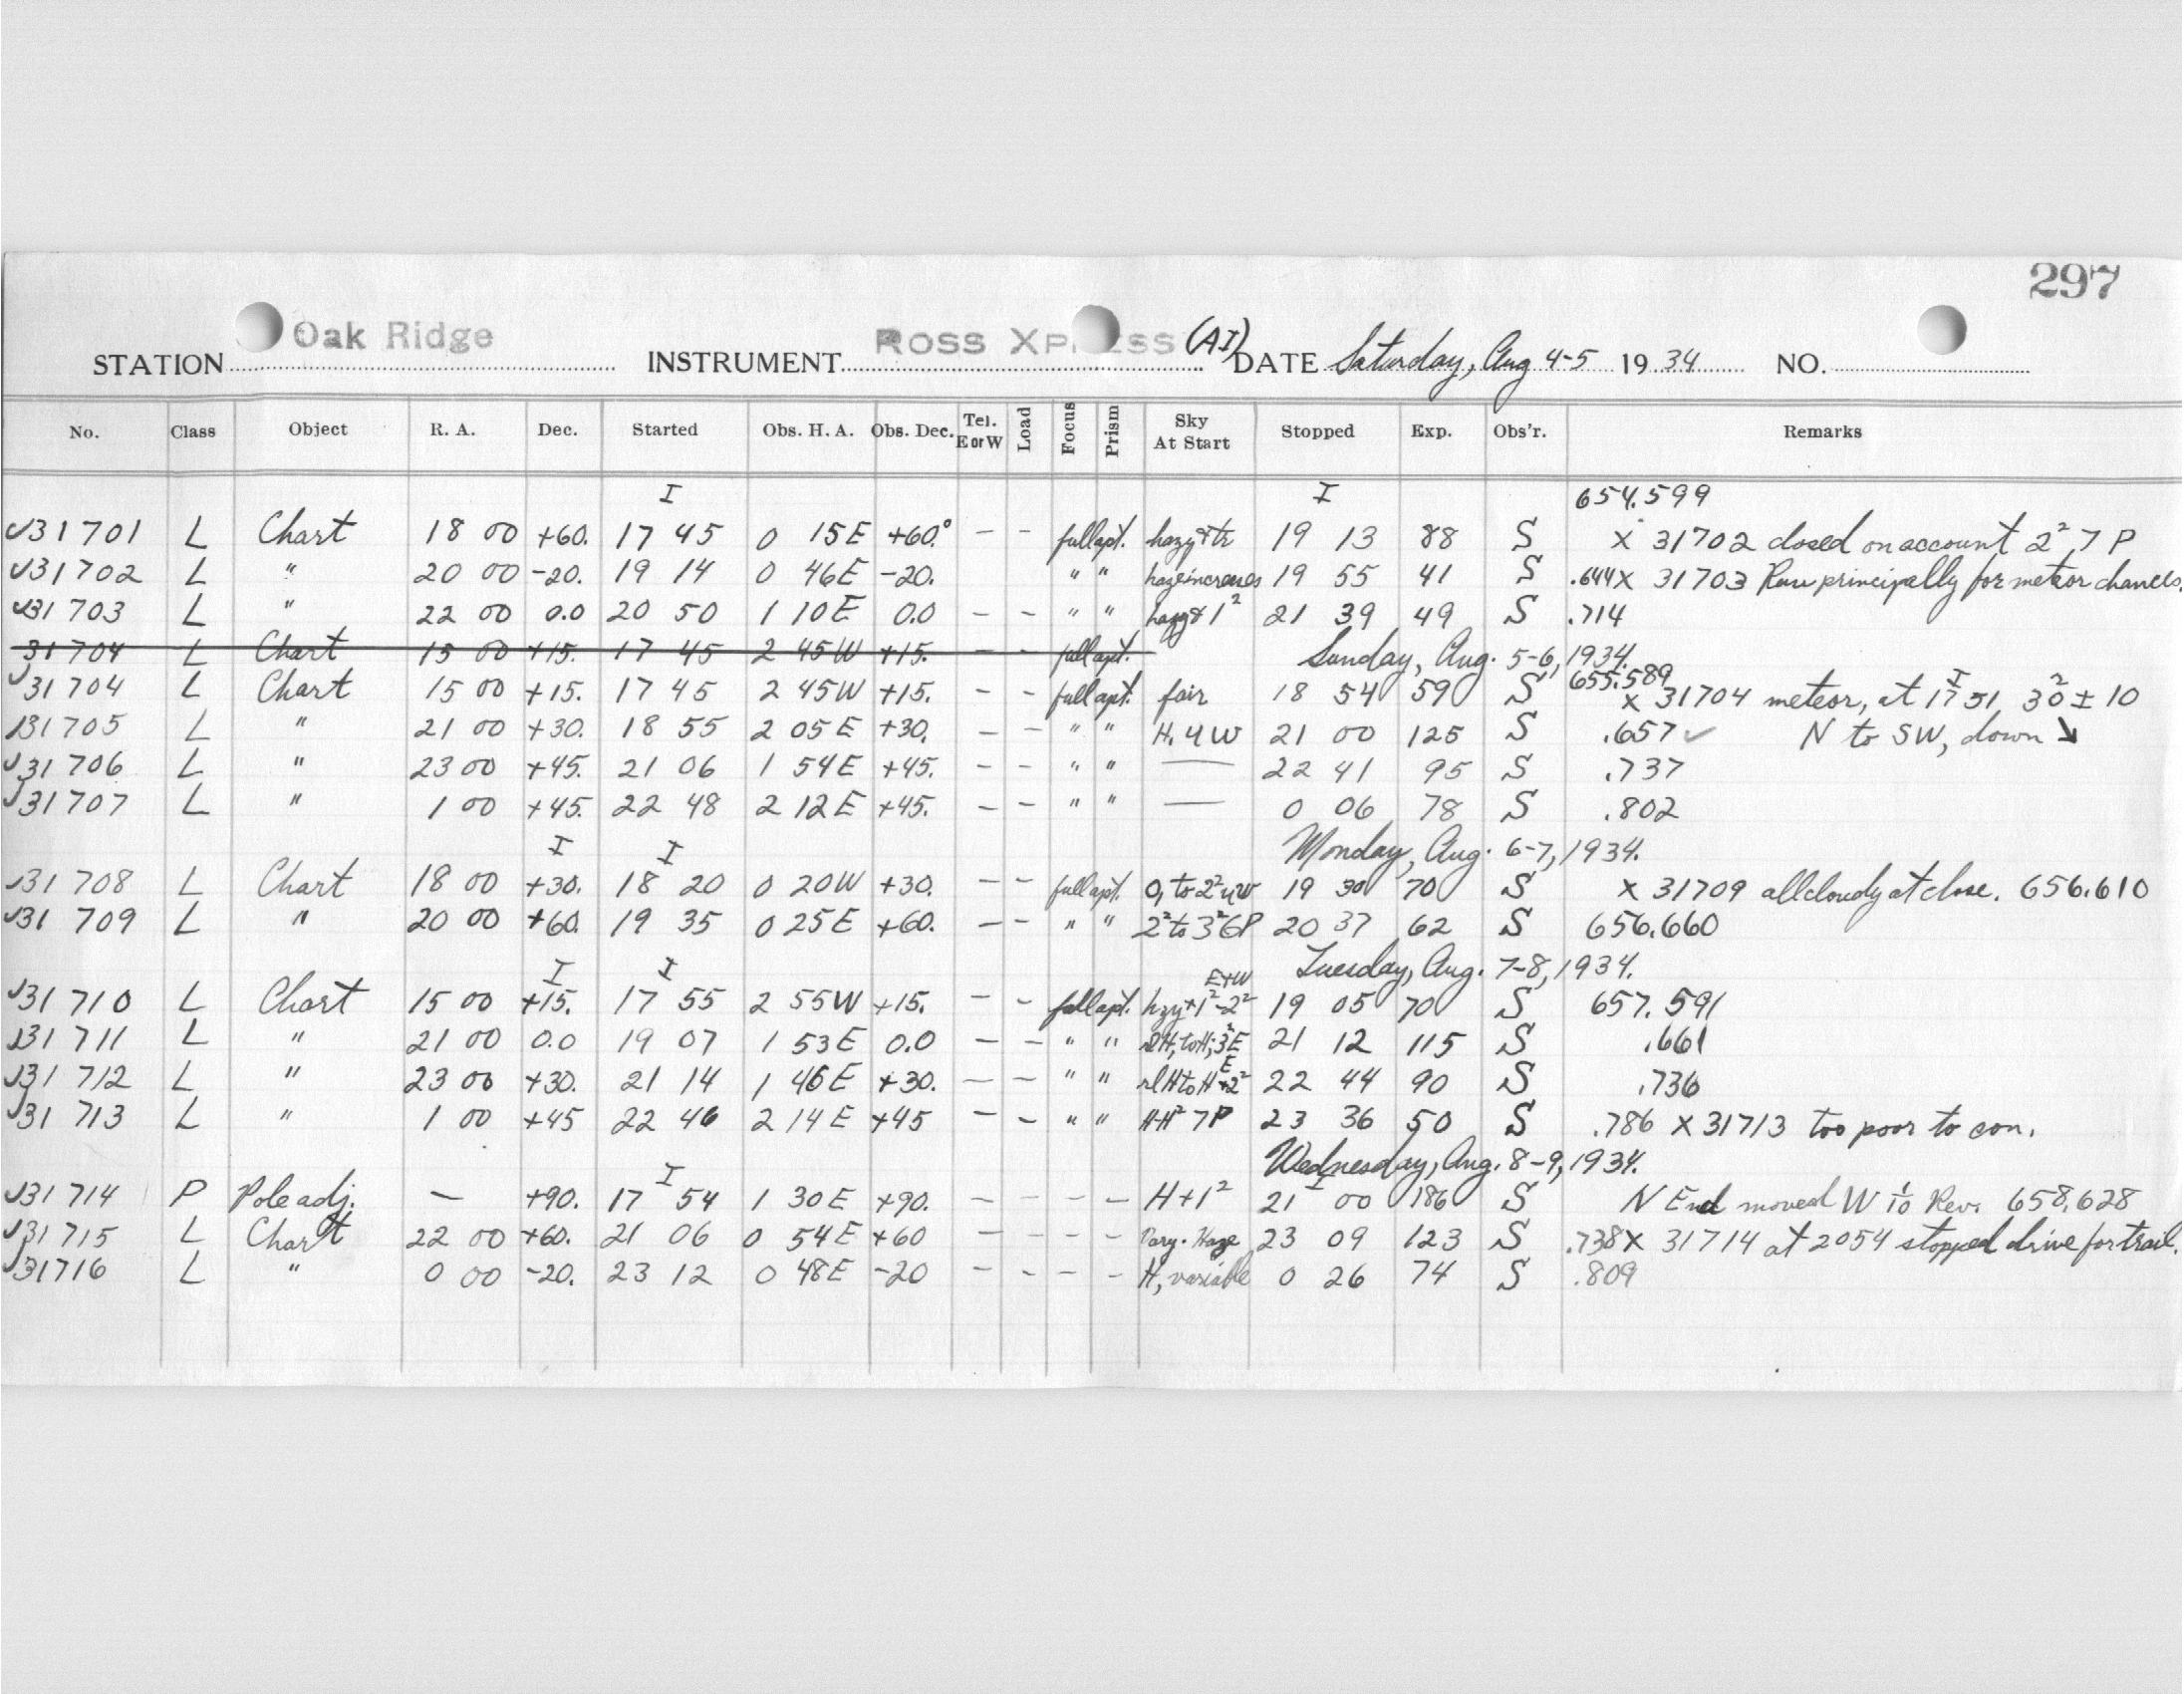 297
STATION Oak Ridge INSTRUMENT ROSS XPRESS (AI) DATE Saturday, Aug 4-5 1934 NO.
No. Class Object R. A. Dec. Started Obs. H. A. Obs. Dec. Tel. E or W Load Focus Prism Sky At Start Stopped Exp. Obs'r. Remarks
I I 654.599
31701 L Chart 18 00 +60. 17 45 0 15E +60.° - - full apt. hazy + tr 19 13 88 S X 31702 closed on account 2² 7 P
31702 L " 20 00 -20. 19 14 0 46E -20. " " haze increases 19 55 41 S .644 X 31703 Run principally for meteor chances.
31703 L " 22 00 0.0 20 50 1 10E 0.0 - - " " hazy & 1² 21 39 49 S .714
31704 L Chart 15 00 +15. 17 45 2 45W +15. - - full apt. Sunday, Aug. 5-6, 1934.
31704 L Chart 15 00 +15. 17 45 2 45W +15. - - full apt. fair 18 54 59 S 655.589 X 31704 meteor, at 17 51, 3²0 ± 10
31705 L " 21 00 +30. 18 55 2 05E +30. - - " " H. 4 W 21 00 125 S .657 ✓ N to SW, down ↘
31706 L " 23 00 +45. 21 06 1 54E +45. - - " " — 22 41 95 S .737
31707 L " 1 00 +45. 22 48 2 12E +45. - - " " — 0 06 78 S .802
I I Monday, Aug. 6-7, 1934.
31708 L Chart 18 00 +30. 18 20 0 20W +30. - - full apt. 0, to 2² 4W 19 30 70 S X 31709 all cloudy at close. 656.610
31709 L " 20 00 +60. 19 35 0 25E +60. - - " " 2² to 3² 6P 20 37 62 S 656.660
I I E+W Tuesday, Aug. 7-8, 1934.
31710 L Chart 15 00 +15. 17 55 2 55W +15. - - full apt. hzy + 1²-2² 19 05 70 S 657.591
31711 L " 21 00 0.0 19 07 1 53E 0.0 - - " " slH, to H; 3²E 21 12 115 S .661
31712 L " 23 00 +30. 21 14 1 46E +30. - - " " slH to H + 2² E 22 44 90 S .736
31713 L " 1 00 +45 22 46 2 14E +45 - - " " 7P 23 36 50 S .786 X 31713 too poor to con.
Wednesday, Aug. 8-9, 1934.
31714 P Pole adj. — +90. 17 54 1 30E +90. - - - - H + 1² 21 00 186 S N End moved W 1/10 Rev. 658.628
31715 L Chart 22 00 +60. 21 06 0 54E +60 - - - - Vary. Haze 23 09 123 S .738 X 31714 at 2054 stopped drive for trail.
31716 L " 0 00 -20. 23 12 0 48E -20 - - - - H, variable 0 26 74 S .809